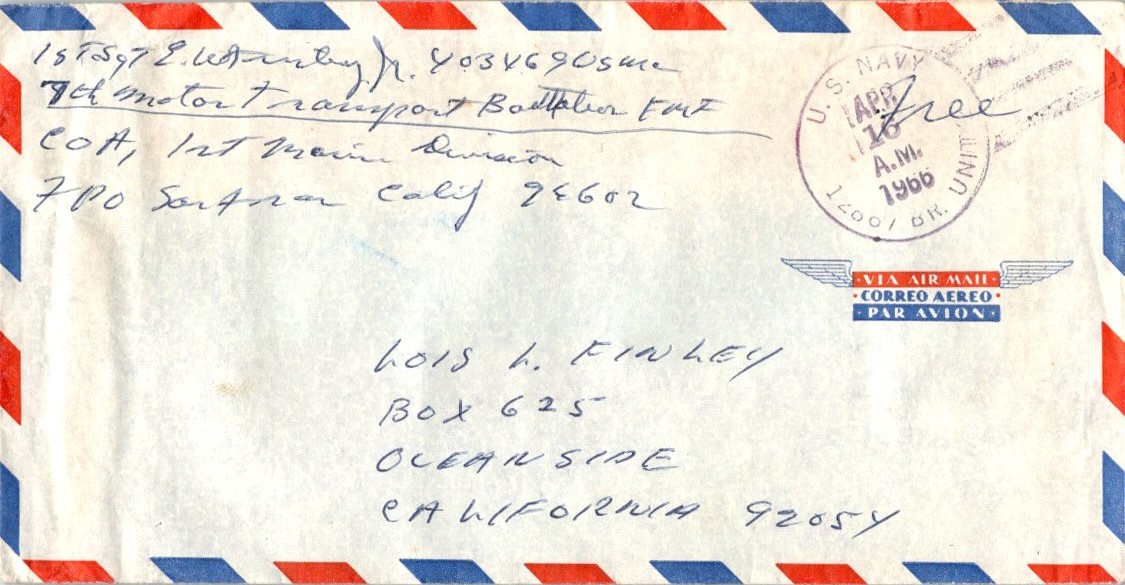 1stSgt E. Jr. 403469 USMC
7th Motor Transport Battalion FMF
CO A, 1st Marine Division
FPO San Fran Calif 96602
Free
U.S. NAVY
APR
16
A.M.
1966
12001 BR. UNIT
VIA AIR MAIL
CORREO AEREO
PAR AVION
LOIS L. FINLEY
BOX 625
OCEANSIDE
CALIFORNIA 92054